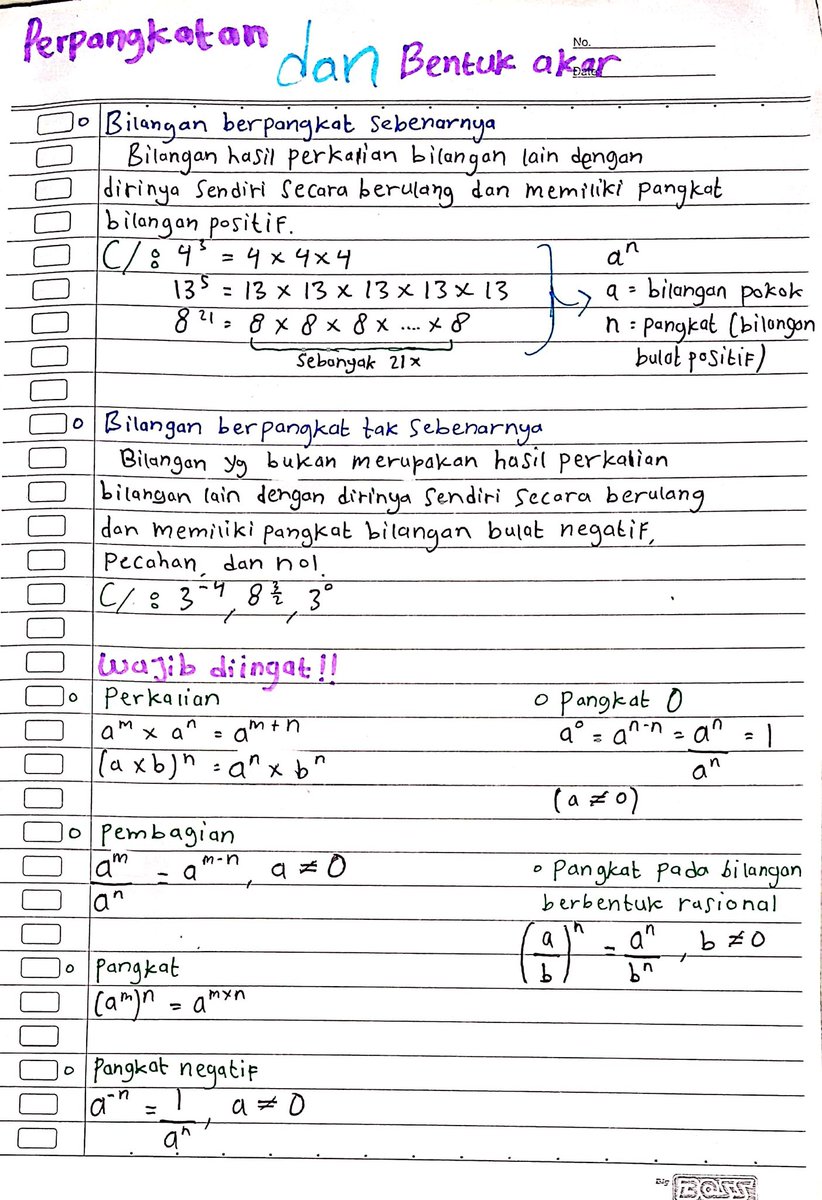 Perpangkatan dan Bentuk akar
No.
Date
Bilangan berpangkat sebenarnya
Bilangan hasil perkalian bilangan lain dengan
dirinya sendiri secara berulang dan memiliki pangkat
bilangan positif.
C/: 4³ = 4 × 4 × 4
13⁵ = 13 × 13 × 13 × 13 × 13
8²¹ = 8 × 8 × 8 × .... × 8
Sebanyak 21x
aⁿ
a = bilangan pokok
n = pangkat (bilangan
bulat positif)
Bilangan berpangkat tak sebenarnya
Bilangan yg bukan merupakan hasil perkalian
bilangan lain dengan dirinya sendiri secara berulang
dan memiliki pangkat bilangan bulat negatif,
Pecahan, dan nol.
C/: 3⁻⁴, 8^(3/2), 3⁰
Wajib diingat!!
Perkalian
aᵐ × aⁿ = aᵐ⁺ⁿ
(a × b)ⁿ = aⁿ × bⁿ
Pembagian
aᵐ/aⁿ = aᵐ⁻ⁿ, a ≠ 0
Pangkat
(aᵐ)ⁿ = aᵐˣⁿ
Pangkat negatif
a⁻ⁿ = 1/aⁿ, a ≠ 0
Pangkat 0
a⁰ = aⁿ⁻ⁿ = aⁿ/aⁿ = 1
(a ≠ 0)
Pangkat pada bilangan
berbentuk rasional
(a/b)ⁿ = aⁿ/bⁿ, b ≠ 0
Big BOSS